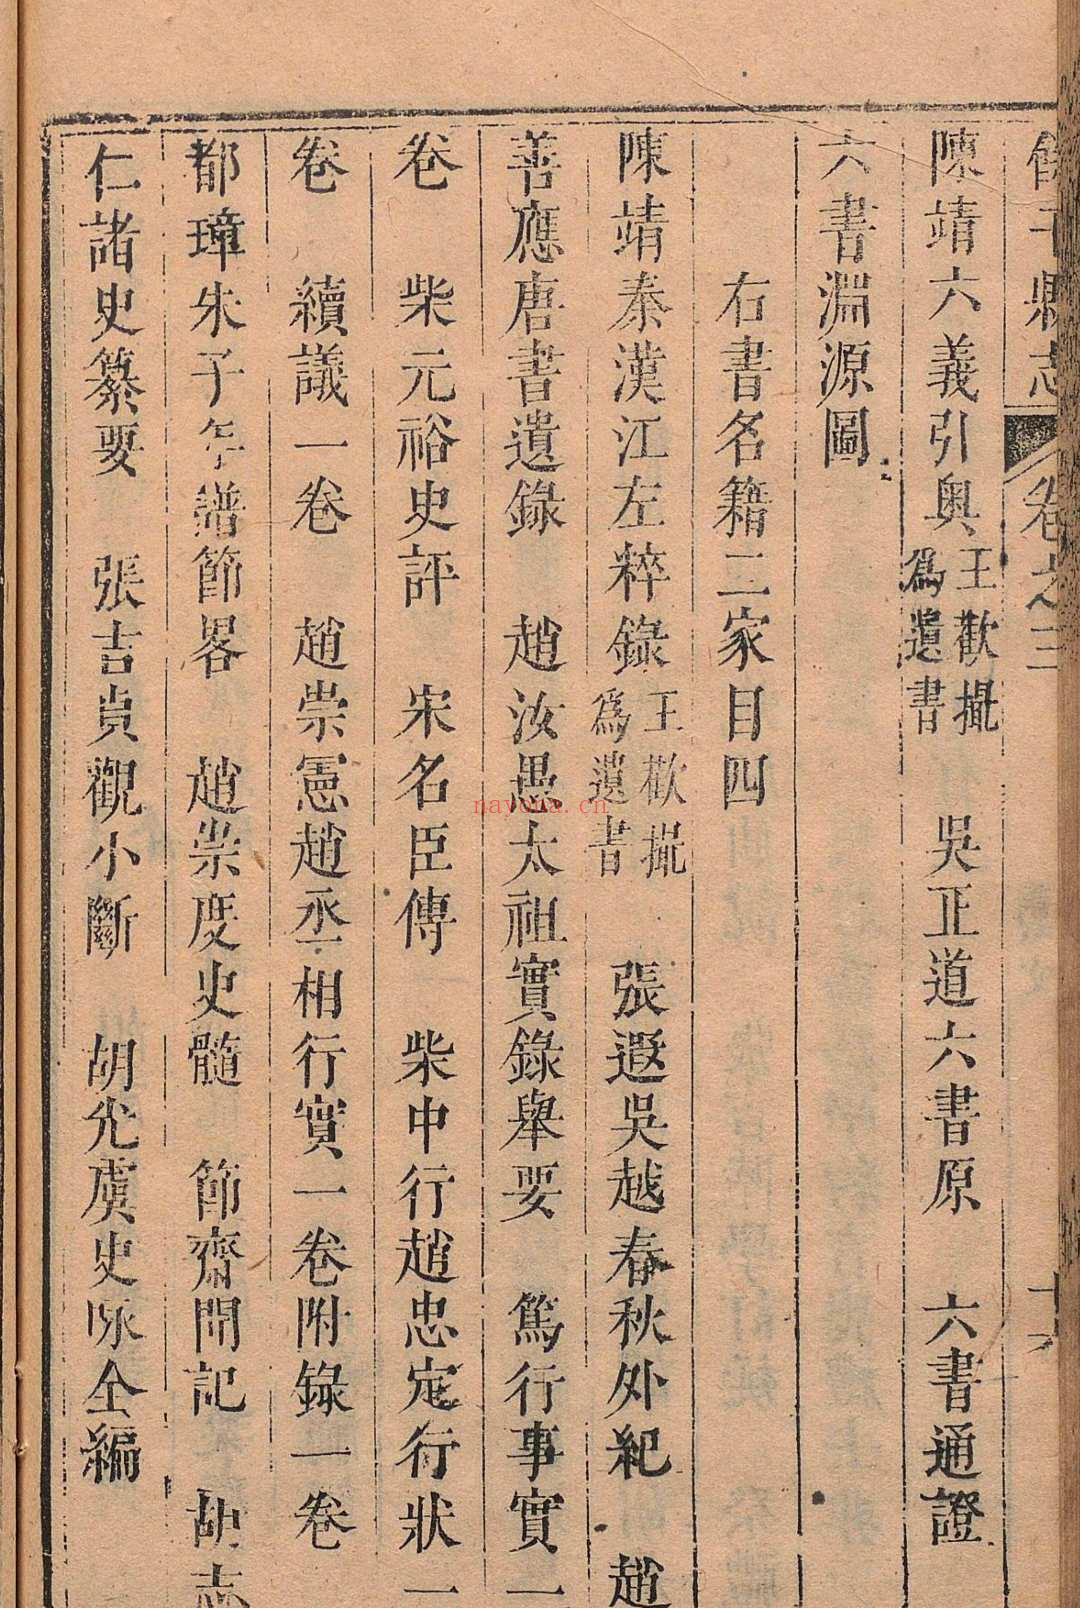 縣志 卷之三
陳靖六義引奧王歡撮爲遺書 吳正道六書原 六書通證
六書淵源圖
右書名籍二家目四
陳靖秦漢江左粹錄王歡撮爲遺書 張遐吳越春秋外紀 趙
善應唐書遺錄 趙汝愚太祖實錄舉要 篤行事實一
卷 柴元裕史評 宋名臣傳 柴中行趙忠定行狀一
卷 續議一卷 趙崇憲趙丞相行實一卷附錄一卷
都璋朱子年譜節畧 趙崇度史髓 節齋聞記 胡志
仁諸史纂要 張吉貞觀小斷 胡光虞史咏全編
nayona.cn